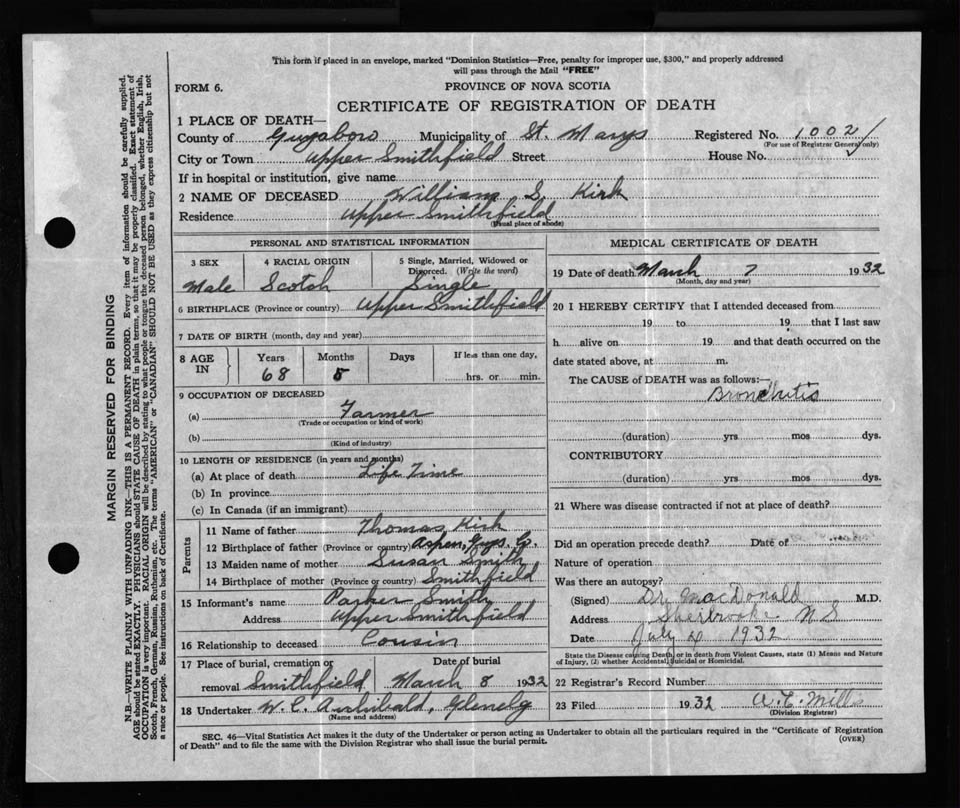 This form if placed in an envelope, marked "Dominion Statistics—Free, penalty for improper use, $300," and properly addressed
will pass through the Mail "FREE"
FORM 6.
PROVINCE OF NOVA SCOTIA
CERTIFICATE OF REGISTRATION OF DEATH
1 PLACE OF DEATH—
County of Guysboro Municipality of St. Marys Registered No. 1002
(For use of Registrar General only)
City or Town Upper Smithfield Street House No.
If in hospital or institution, give name
2 NAME OF DECEASED William S. Kirk
Residence Upper Smithfield
(Usual place of abode)
PERSONAL AND STATISTICAL INFORMATION
3 SEX 4 RACIAL ORIGIN 5 Single, Married, Widowed or
Divorced. (Write the word)
Male Scotch Single
6 BIRTHPLACE (Province or country) Upper Smithfield
7 DATE OF BIRTH (month, day and year)
8 AGE IN Years Months Days If less than one day,
68 hrs. or min.
9 OCCUPATION OF DECEASED
(a) Farmer
(Trade or occupation or kind of work)
(b)
(Kind of industry)
10 LENGTH OF RESIDENCE (in years and months)
(a) At place of death Life Time
(b) In province
(c) In Canada (if an immigrant)
Parents
11 Name of father Thomas Kirk
12 Birthplace of father (Province or country) Aspen, Guys. Co.
13 Maiden name of mother Susan Smith
14 Birthplace of mother (Province or country) Smithfield
15 Informant's name Parker Smith
Address Upper Smithfield
16 Relationship to deceased Cousin
17 Place of burial, cremation or Date of burial
removal Smithfield March 8 1932
18 Undertaker W. C. Archibald, Glenelg
(Name and address)
MEDICAL CERTIFICATE OF DEATH
19 Date of death March 7 1932
(Month, day and year)
20 I HEREBY CERTIFY that I attended deceased from
19 to 19 that I last saw
h alive on 19 and that death occurred on the
date stated above, at m.
The CAUSE of DEATH was as follows:—
Bronchitis
(duration) yrs mos dys.
CONTRIBUTORY
(duration) yrs mos dys.
21 Where was disease contracted if not at place of death?
Did an operation precede death? Date of
Nature of operation
Was there an autopsy?
(Signed) Dr. MacDonald M.D.
Address Sherbrooke N S
Date July 4 1932
State the Disease causing Death, or in death from Violent Causes, state (1) Means and Nature
of Injury, (2) whether Accidental, Suicidal or Homicidal.
22 Registrar's Record Number
23 Filed 1932 Mills
(Division Registrar)
SEC. 46—Vital Statistics Act makes it the duty of the Undertaker or person acting as Undertaker to obtain all the particulars required in the "Certificate of Registration
of Death" and to file the same with the Division Registrar who shall issue the burial permit. (OVER)
MARGIN RESERVED FOR BINDING
N.B.—WRITE PLAINLY WITH UNFADING INK—THIS IS A PERMANENT RECORD. Every item of information should be carefully supplied.
AGE should be stated EXACTLY. PHYSICIANS should STATE CAUSE OF DEATH in plain terms, so that it may be properly classified. Exact statement of
OCCUPATION is very important. RACIAL ORIGIN will be described by stating to what people or tongue the deceased person belonged, whether English, Irish,
Scotch, French, German, Russian, Ruthenian, etc. The terms "AMERICAN" or "CANADIAN" SHOULD NOT BE USED as they express citizenship but not
a race or people. See instructions on back of Certificate.